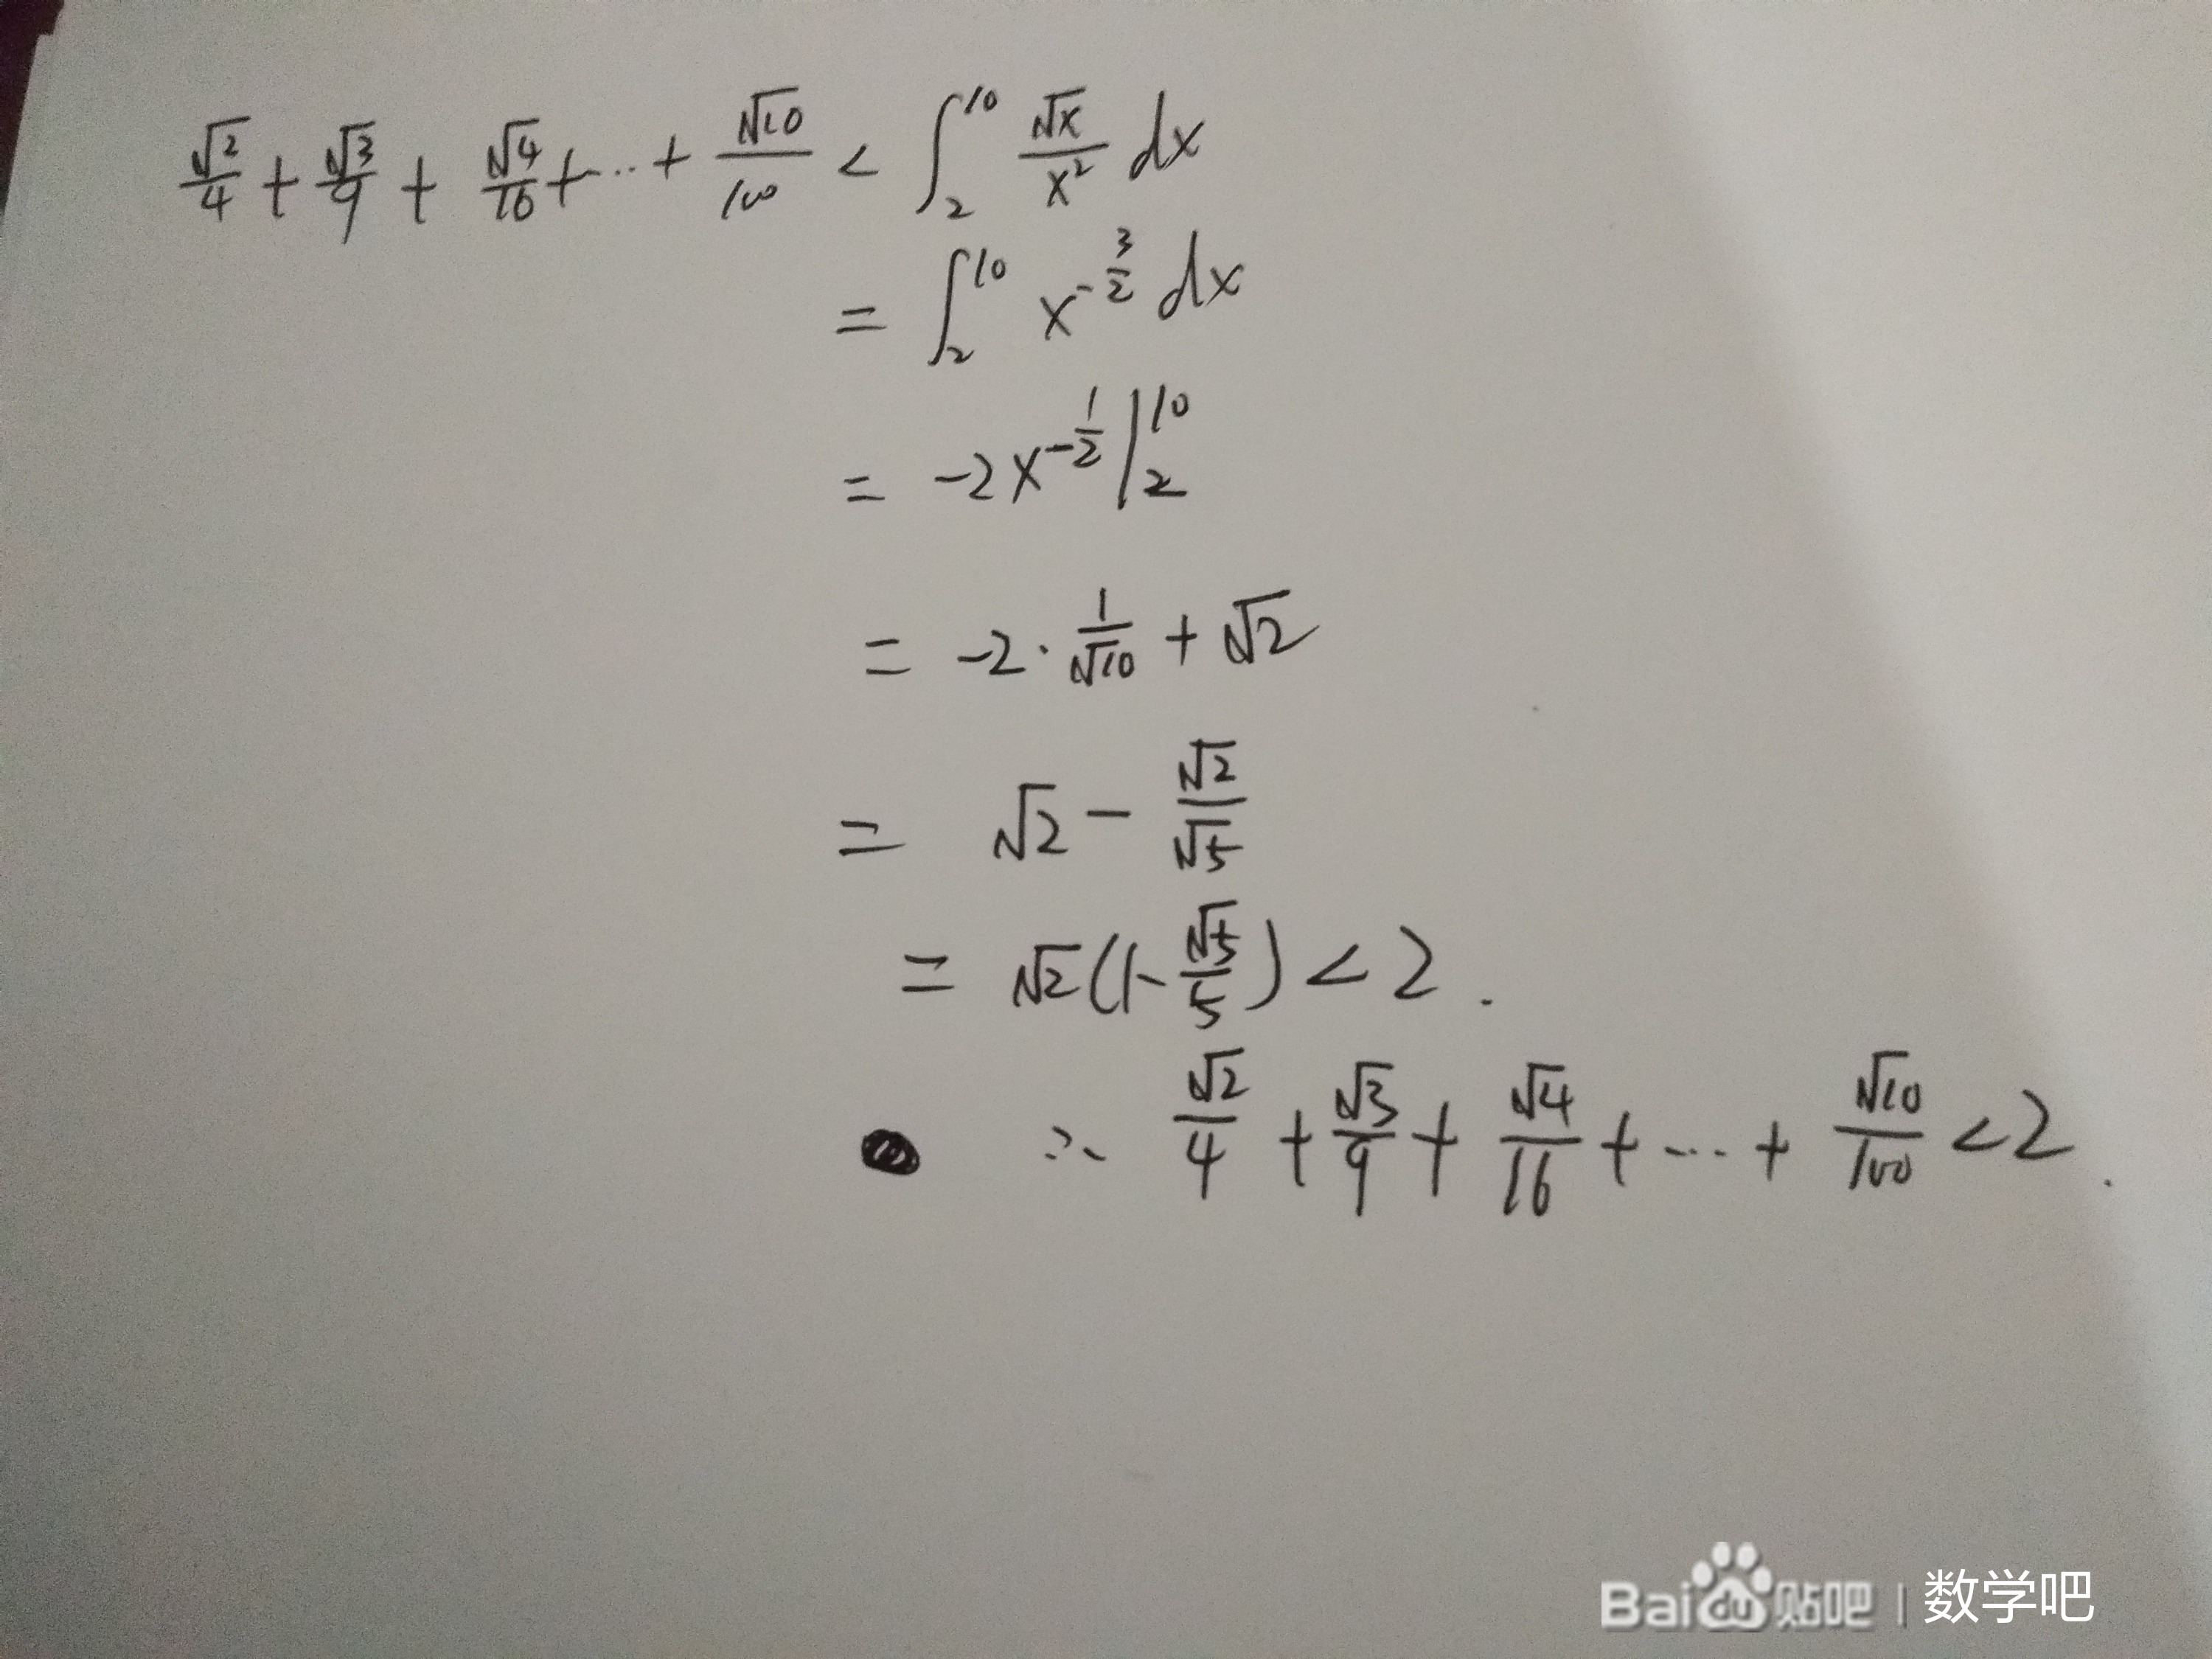 √2/4 + √3/9 + √4/16 + ... + √10/100 < ∫₂¹⁰ √x/x² dx
= ∫₂¹⁰ x^(-3/2) dx
= -2x^(-1/2) |₂¹⁰
= -2 · 1/√10 + √2
= √2 - √2/√5
= √2(1-√5/5) < 2 .
∴ √2/4 + √3/9 + √4/16 + ... + √10/100 < 2 .
Bai du 贴吧 | 数学吧